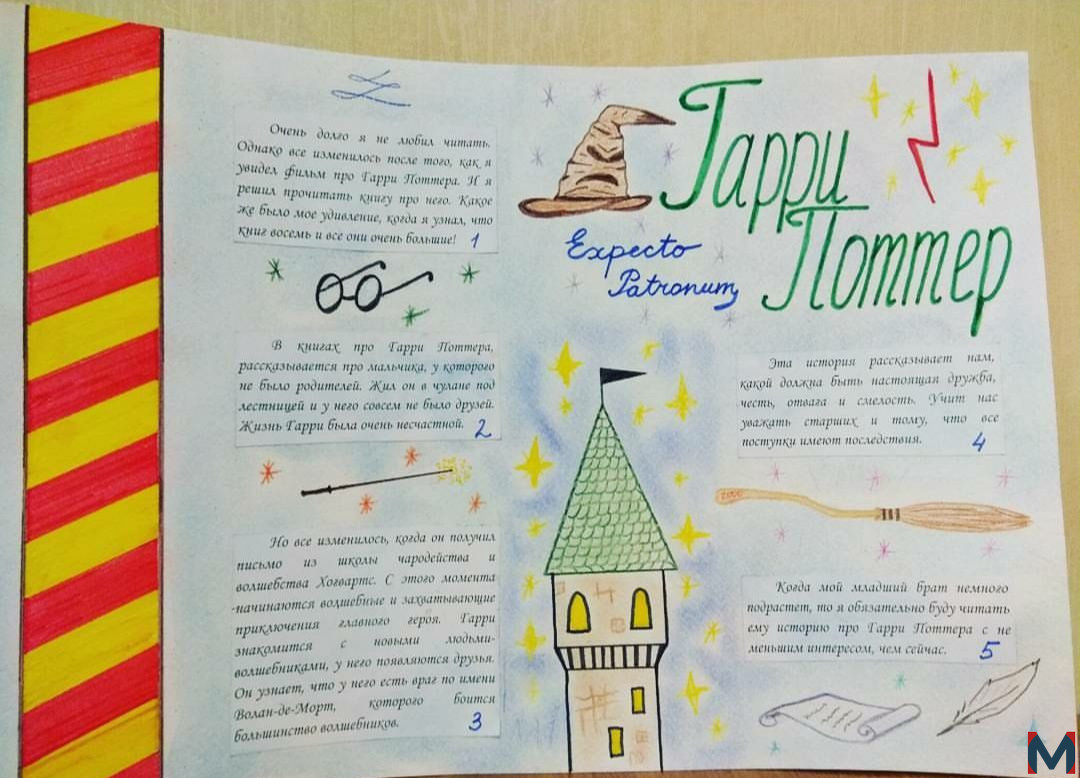 Гарри
Поттер
Expecto
Patronum
Очень долго я не любил читать.
Однако все изменилось после того, как я
увидел фильм про Гарри Поттера. И я
решил прочитать книгу про него. Какое
же было мое удивление, когда я узнал, что
книг восемь и все они очень большие! 1
В книгах про Гарри Поттера,
рассказывается про мальчика, у которого
не было родителей. Жил он в чулане под
лестницей и у него совсем не было друзей.
Жизнь Гарри была очень несчастной. 2
Но все изменилось, когда он получил
письмо из школы чародейства и
волшебства Хогвартс. С этого момента
начинаются волшебные и захватывающие
приключения главного героя. Гарри
знакомится с новыми людьми-
волшебниками, у него появляются друзья.
Он узнает, что у него есть враг по имени
Волан-де-Морт, которого боится
большинство волшебников. 3
Эта история рассказывает нам,
какой должна быть настоящая дружба,
честь, отвага и смелость. Учит нас
уважать старших и тому, что все
поступки имеют последствия. 4
Когда мой младший брат немного
подрастет, то я обязательно буду читать
ему историю про Гарри Поттера с не
меньшим интересом, чем сейчас. 5
M